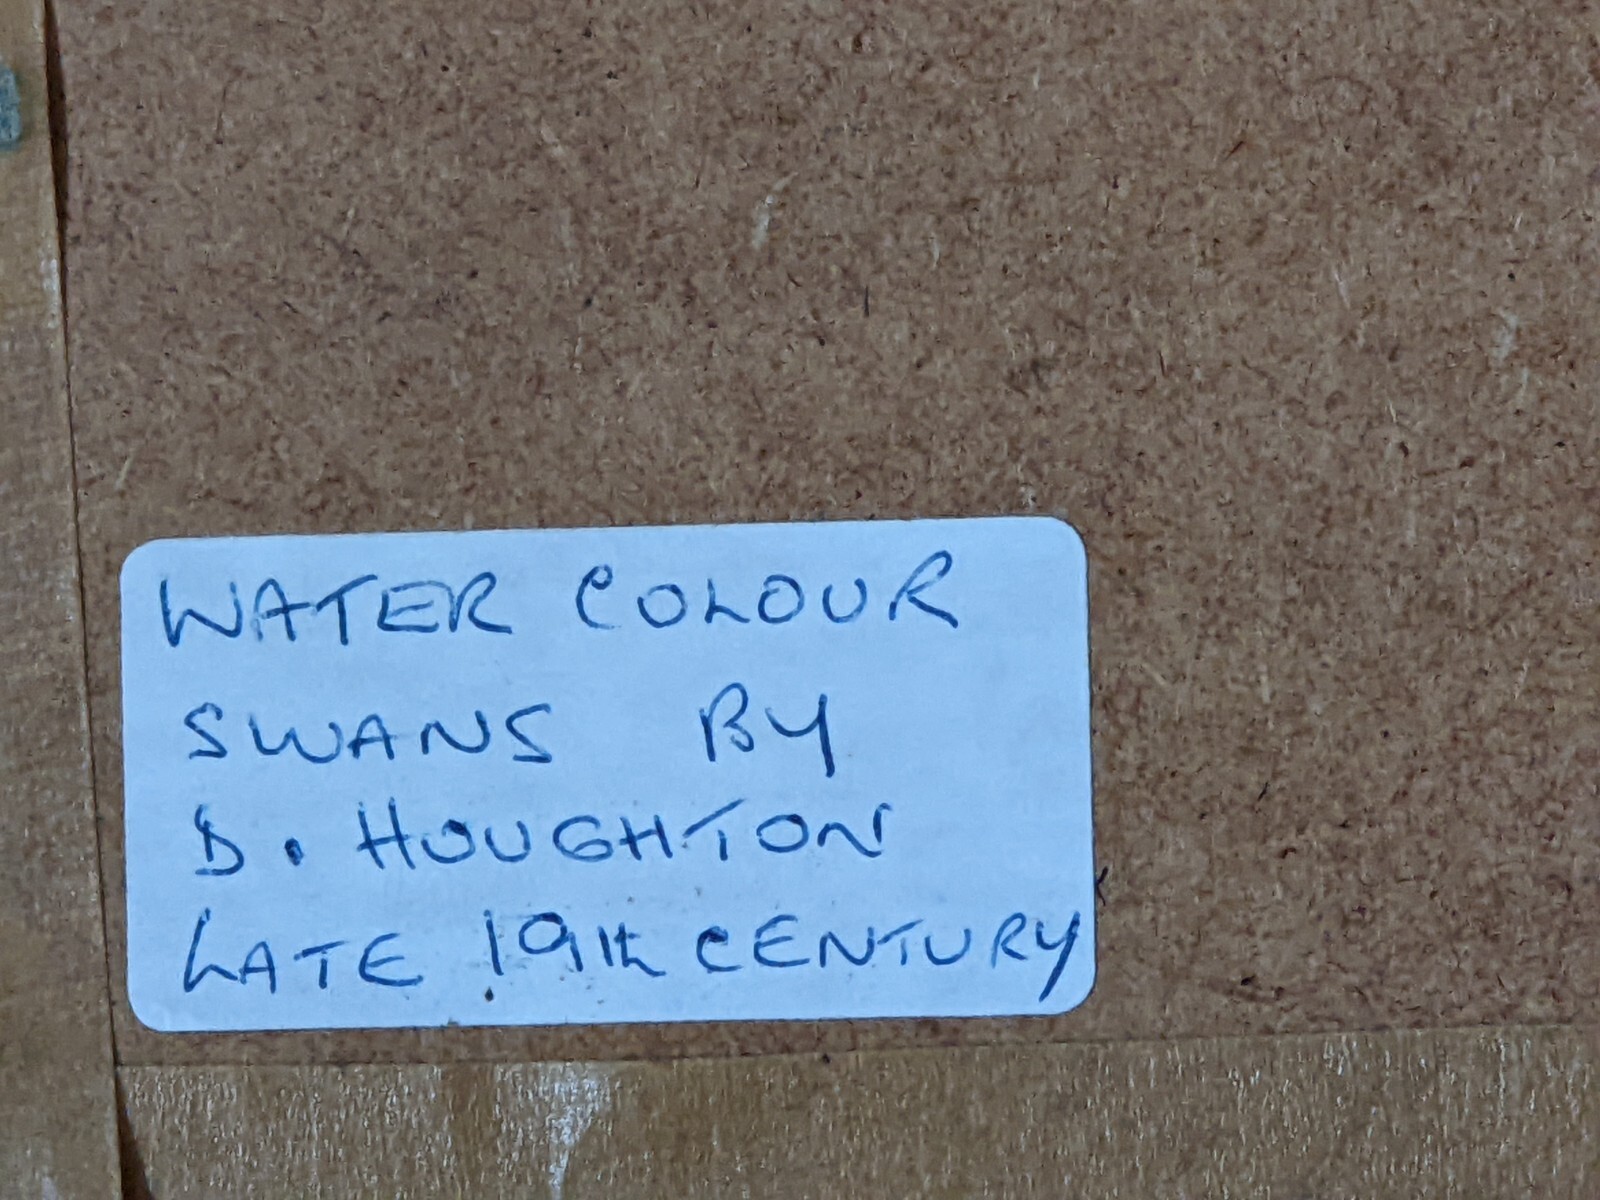 WATER COLOUR
SWANS BY
D. HOUGHTON
LATE 19th CENTURY